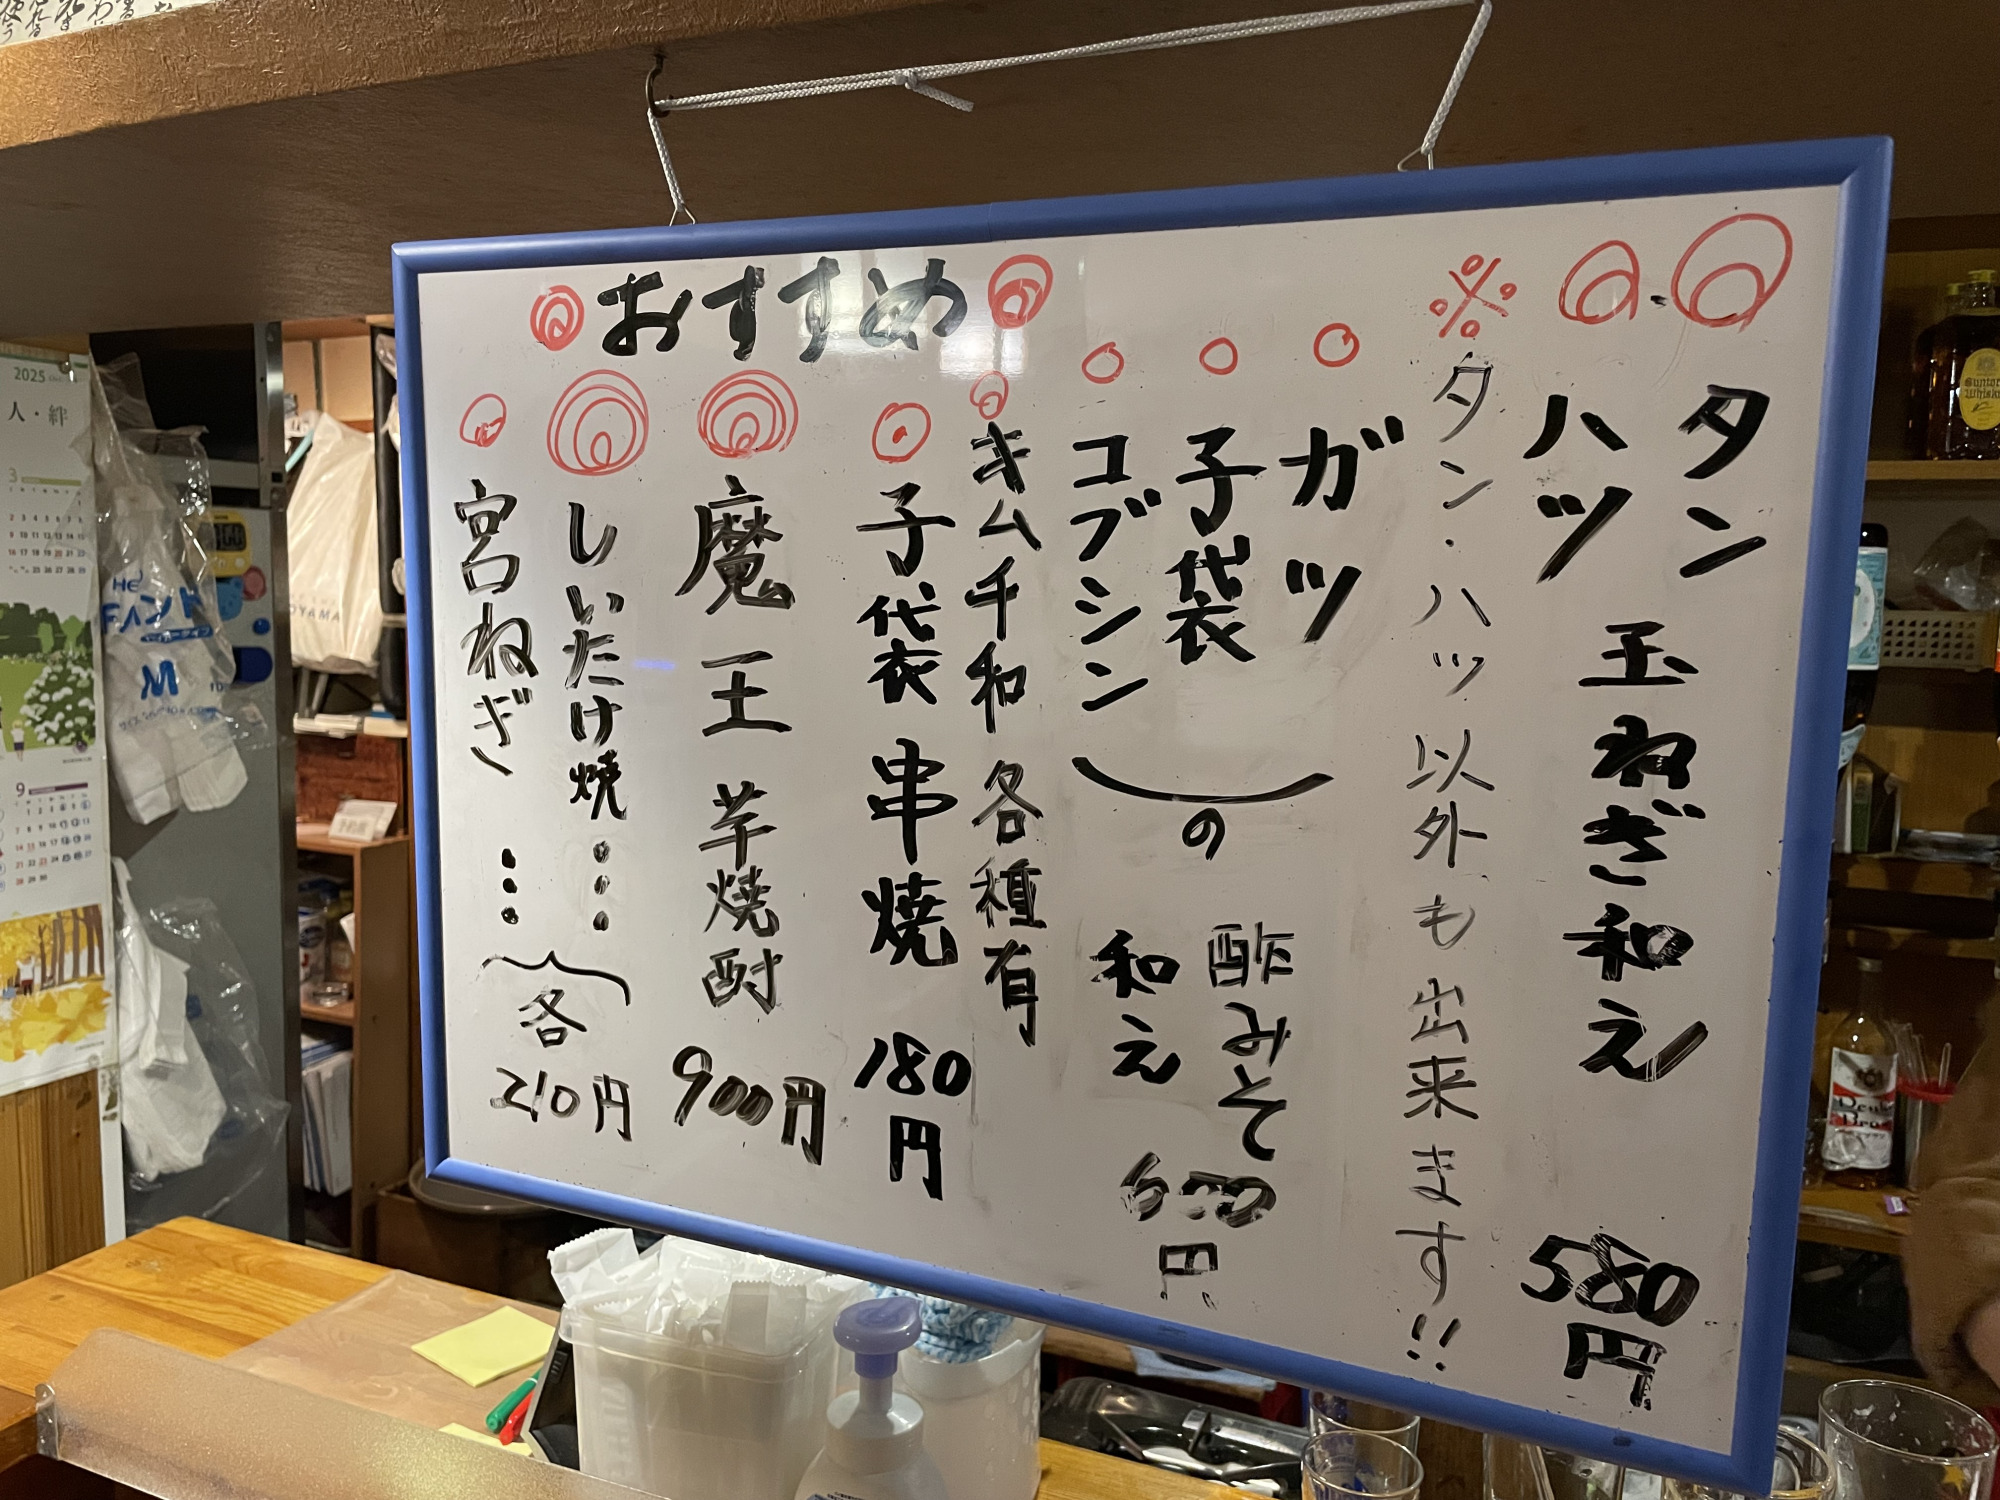 おすすめ
タン
ハツ
玉ねぎ和え
580円
※タン・ハツ以外も出来ます!!
ガツ
子袋
コブシン
の
酢みそ
和え
600円
キムチ和各種有
子袋串焼
180円
魔王芋焼酎
900円
しいたけ焼…
宮ねぎ…
各
210円
2025
人・絆
3
9
Suntory
Whisky